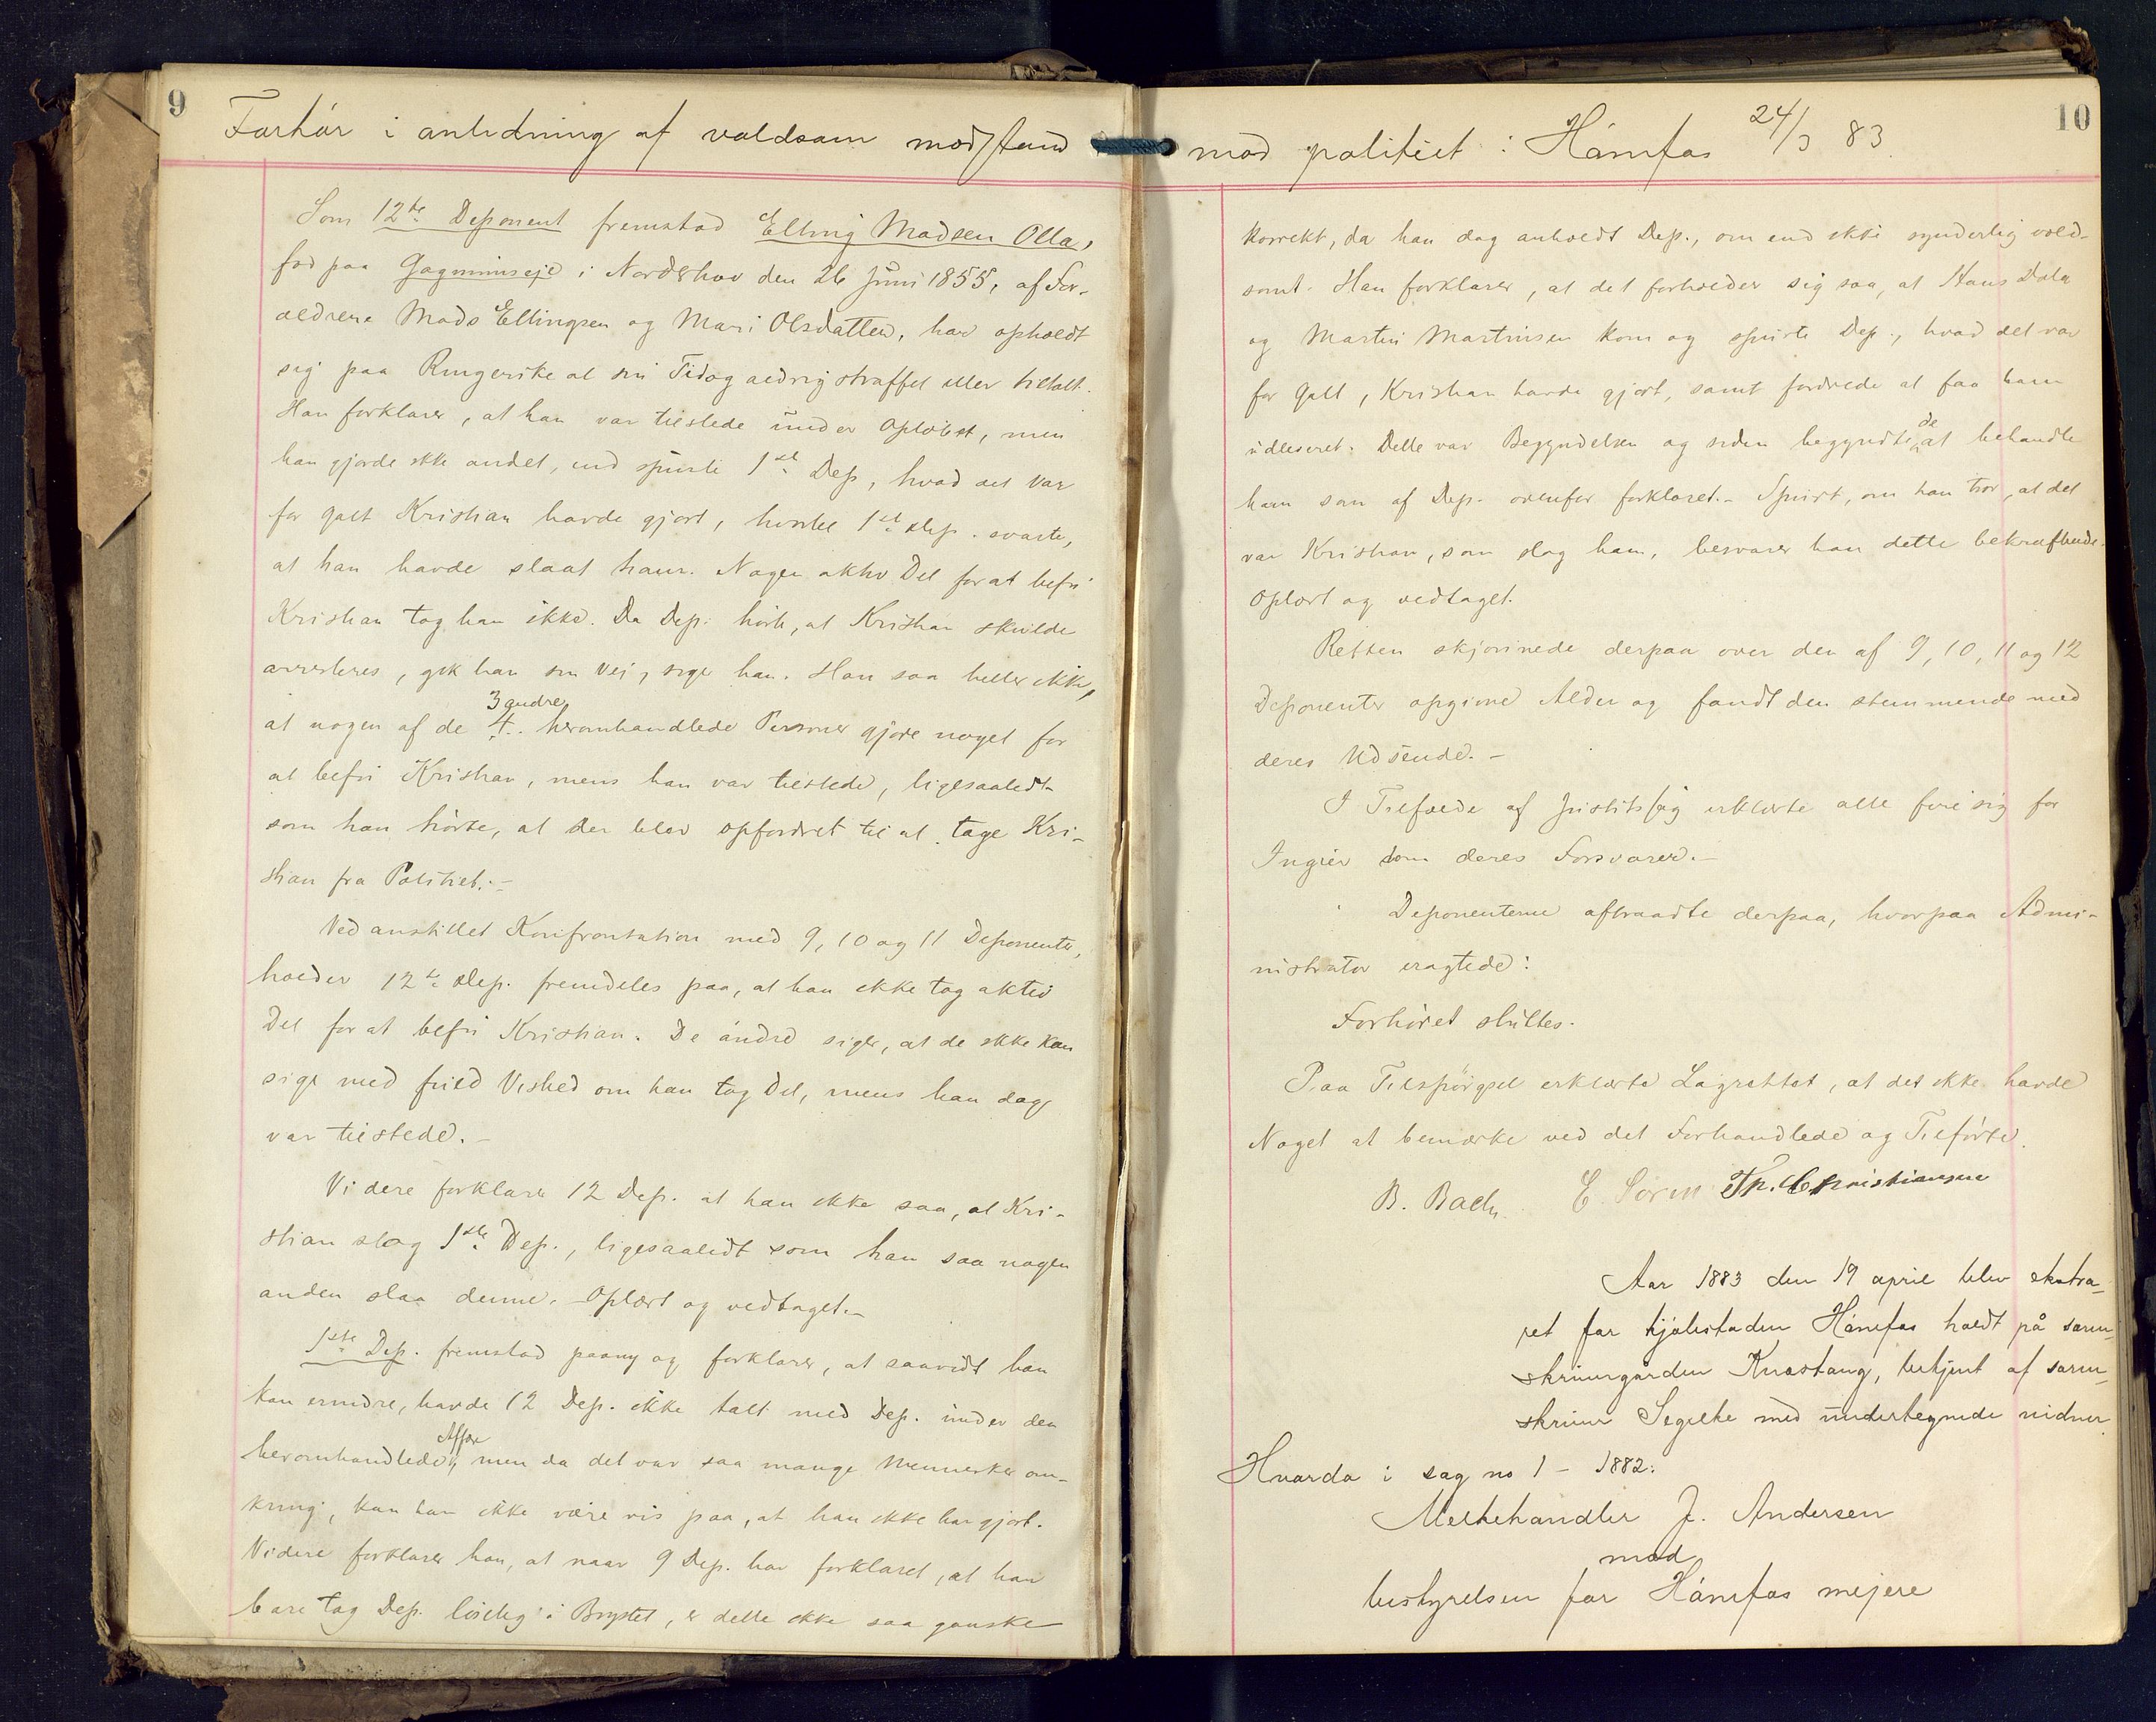 9
Forhör i anledning af voldsom modstand
Som 12te Deponent fremstod Elling Madsen Olla,
fød paa Gagnumseje i Norderhov den 26 Juni 1855, af For-
ældrene Mads Ellingsen og Mari Olsdatter, har opholdt
sig paa Ringerike al sin Tid og aldrig straffet eller tiltalt.
Han forklarer, at han var tilstede under Opløbet, men
han gjorde ikke andet, end spurte 1ste Dep, hvad det var
for galt Kristian havde gjort, hvortil 1ste Dep. svarte,
at han havde slaat ham. Nogen aktiv Del for at befri
Kristian tog han ikke. Da Dep. hørte, at Kristian skulde
arresteres, gik han sin Vei, siger han. Han saa heller ikke,
at nogen af de 4 3 andre heromhandlede Personer gjøre noget for
at befri Kristian, mens han var tilstede, ligesaalidt
som han hørte, at der blev opfordret til at tage Kri-
stian fra Politiet.-
Ved anstillet Konfrontation med 9, 10 og 11 Deponenter,
holder 12te Dep. fremdeles paa, at han ikke tog aktiv
Del for at befri Kristian. De andre siger, at de ikke kan
sige med fuld Vished om han tog Del, mens han dog
var tilstede.-
Videre forklarer 12 Dep. at han ikke saa, at Kri-
stian slog 1ste Dep., ligesaalidt som han saa nogen
anden slaa denne. Oplæst og vedtaget.-
1ste Dep. fremstod paany og forklarer, at saavidt han
kan erindre, havde 12 Dep. ikke talt med Dep. under den
heromhandlede Affære, men da det var saa mange Mennesker om-
kring, kan han ikke være vis paa, at han ikke har gjort.
Videre forklarer han, at naar 9 Dep. har forklaret, at han
bare tog Dep. løselig i Brystet, er dette ikke saa ganske
10
mod politiet i Hönefos 24/3 83.
korrekt, da han dog anholdt Dep., om end ikke synderlig vold-
somt. Han forklarer, at det forholder sig saa, at Hans Dala
og Martin Martinsen kom og spurte Dep., hvad det var
for galt, Kristian havde gjort, samt fordrede at faa ham
udleveret. Dette var Begyndelsen og siden begyndte de at behandle
ham som af Dep. ovenfor forklaret.- Spurt, om han tror, at det
var Kristian, som slog ham, besvarer han dette bekræftende.
Oplæst og vedtaget.
Retten skjønnede derpaa over den af 9, 10, 11 og 12
Deponenter opgivne Alder og fandt den stemmende med
deres Udseende.-
I Tilfælde af Justitssag erklærte alle fire sig for
Ingier som deres Forsvarer.-
Deponenterne aftraadte derpaa, hvorpaa Admi-
nistrator eragtede:
Forhøret sluttes.
Paa Tilspørgsel erklærte Lagrettet, at det ikke havde
Noget at bemærke ved det Forhandlede og Tilførte.
B. Bach. E Sørm Th. Christiansen
Aar 1883 den 19 april blev ekstra-
ret for kjöbstaden Hönefos holdt på soren-
skrivergården Knæstang, betjent af soren-
skriver Segelke med undertegnede vidner.
Hvorda i sag no 1 - 1882:
Melkehandler J. Andersen
mod
bestyrelsen for Hönefos mejere